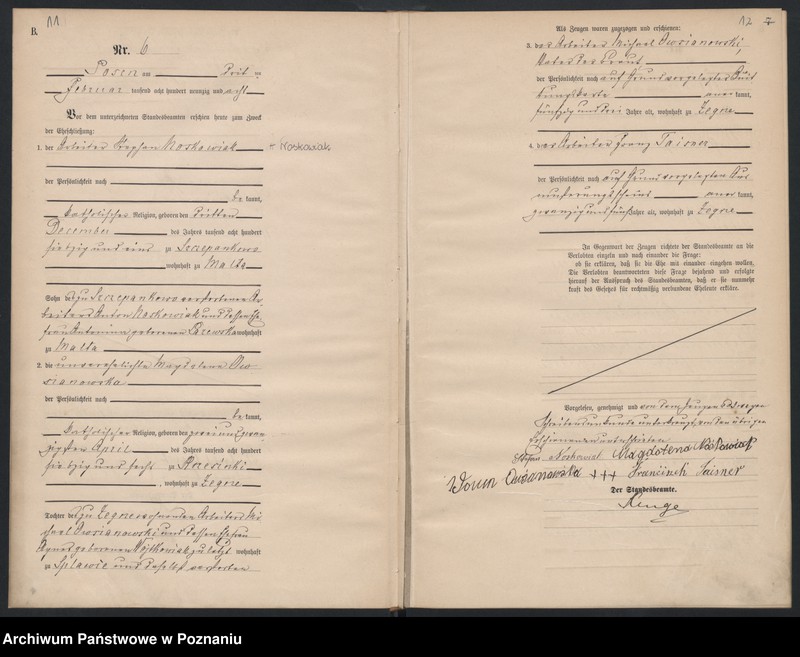 11
B.
Nr. 6
Posen am
Februar tausend acht hundert neunzig und acht
Vor dem unterzeichneten Standesbeamten erschien heute zum Zweck
der Eheschließung:
1. der Arbeiter Stephan Noskowiak
Noskowiak
der Persönlichkeit nach
be kannt,
katholischer Religion, geboren den dritten
December des Jahres tausend acht hundert
siebzig und eins zu Szczepankowo
wohnhaft zu Malta
Sohn des zu Szczepankowo verstorbenen Ar-
beiters Anton Noskowiak und dessen Ehe-
frau Antonina geborenen wohnhaft
zu Malta
2. die unverehelichte Magdalena Ow-
sianowska
der Persönlichkeit nach
be kannt,
katholischer Religion, geboren den zwei und zwan-
zigsten April des Jahres tausend acht hundert
siebzig und sechs zu
, wohnhaft zu Zegrze
Tochter des zu Zegrze wohnenden Arbeiters Mi-
chael Owsianowski und dessen Ehefrau
Agnes geborenen Wojtkowiak zuletzt wohnhaft
zu Splawie und daselbst verstorben
12 7
Als Zeugen waren zugezogen und erschienen:
3. der Arbeiter Michael Owsianowski
Vater der Braut
der Persönlichkeit nach auf Grund vorgelegter Quit-
tungskarte aner kannt,
fünfzig und drei Jahre alt, wohnhaft zu Zegrze
4. der Arbeiter Franz Taisner
der Persönlichkeit nach auf Grund vorgelegten Aus-
musterungsscheins aner kannt,
zwanzig und fünf Jahre alt, wohnhaft zu Zegrze
In Gegenwart der Zeugen richtete der Standesbeamte an die
Verlobten einzeln und nach einander die Frage:
ob sie erklären, daß sie die Ehe mit einander eingehen wollen.
Die Verlobten beantworteten diese Frage bejahend und erfolgte
hierauf der Ausspruch des Standesbeamten, daß er sie nunmehr
kraft des Gesetzes für rechtmäßig verbundene Eheleute erkläre.
Vorgelesen, genehmigt und von dem Zeugen zu 3 wegen
Schreibensunkunde unterkreuzt, von den übrigen
Erschienenen unterschrieben
Stefan Noskowiak Magdalena Noskowiak
Owsianowska +++ Franciszek Taisner
Der Standesbeamte.
Archiwum Państwowe w Poznaniu